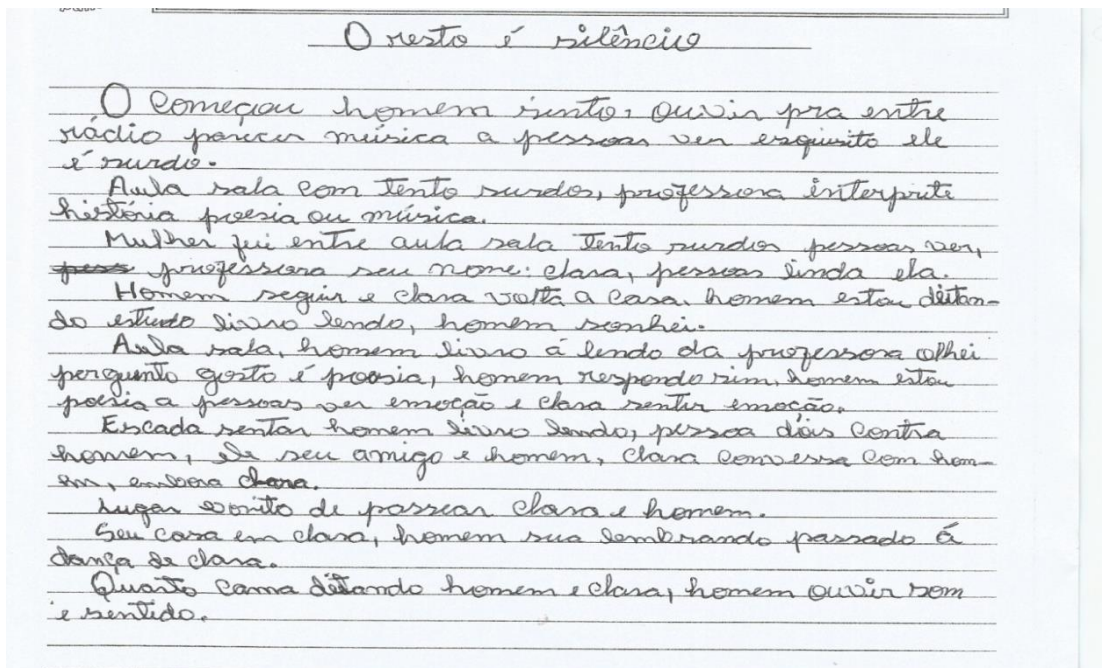 O resto é silêncio
O começou homem sinto, ouvir pra entre
rádio parecer música a pessoas ver esquisito ele
é surdo.
Aula sala com tento surdos, professora interprite
história poesia ou música.
Mulher fui entre aula sala tento surdos pessoas ver,
professora seu nome: clara, pessoas linda ela.
Homem seguir e clara volta a casa. homem estou deitan-
do estudo livro lendo, homem sonhei.
Aula sala, homem livro á lendo da professora olhei
pergunto gosto é poesia, homem respondo sim, homem estou
poesia a pessoas ver emoção e clara sentir emoção.
Escada sentar homem livro lendo, pessoa dois contra
homem, ele seu amigo e homem, clara conversa com hom-
em, embora clara.
Lugar bonito de passear clara e homem.
Seu casa em clara, homem sua lembrando passado á
dança de clara.
Quarto cama ditando homem e clara, homem ouvir som
e sentido.